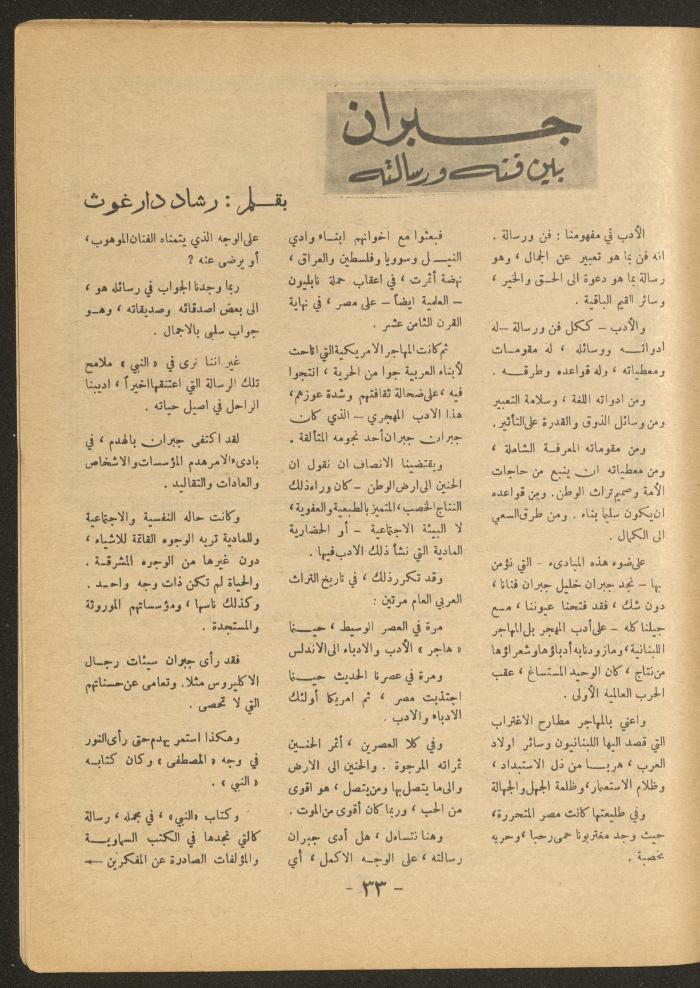 جبران
بين فنه ورسالته
بقلم : رشاد دارغوث
الأدب في مفهومنا : فن ورسالة .
انه فن بما هو تعبير عن الجمال ، وهو
رسالة بما هو دعوة الى الحق والخير ،
وسائر القيم الباقية .
والأدب – ككل فن ورسالة – له
ادواته ووسائله ، له مقومات
ومعطياته ، وله قواعده وطرقه .
ومن ادواته اللغة ، وسلامة التعبير
ومن وسائل الذوق والقدرة على التأثير.
ومن مقوماته المعرفة الشاملة ،
ومن معطياته ان ينبع من حاجات
الأمة وصميم تراث الوطن. ومن قواعده
ان يكون سلما بناء . ومن طرق السعي
الى الكمال .
على ضوء هذه المبادىء – التي نؤمن
بها – نجد جبران خليل جبران فنانا ،
دون شك ، فقد فتحنا عيوننا ، مع
جيلنا كله – على أدب المهجر بل المهاجر
اللبنانية ، وما زودنا به أدباؤها وشعراؤها
من نتاج ، كان الوحيد المستساغ ، عقب
الحرب العالمية الأولى .
واعني بالمهاجر مطارح الاغتراب
التي قصد اليها اللبنانيون وسائر اولاد
العرب ، هربا من ذل الاستبداد ،
وظلام الاستعمار ، وظلمة الجهل والجهالة
وفي طليعتها كانت مصر المتحررة ،
حيث وجد مغتربونا حمى رحبا ، وحرية
مخصبة .
فبعثوا مع اخوانهم ابناء وادي
النيل وسوريا وفلسطين والعراق ،
نهضة أثمرت ، في اعقاب حملة نابليون
– العلمية ايضاً – على مصر ، في نهاية
القرن الثامن عشر .
ثم كانت المهاجر الامريكية التي اتاحت
لأبناء العربية جوا من الحرية ، انتجوا
فيه ، على ضحالة ثقافتهم وشدة عوزهم ،
هذا الادب المهجري – الذي كان
جبران جبران أحد نجومه المتألقة .
ويقتضينا الانصاف ان نقول ان
الحنين الى ارض الوطن – كان وراء ذلك
النتاج الخصب ، المتميز بالطبيعية والعفوية ،
لا البيئة الاجتماعية – أو الحضارية
المادية التي نشأ ذلك الادب فيها .
وقد تكرر ذلك ، في تاريخ التراث
العربي العام مرتين :
مرة في العصر الوسيط ، حينما
« هاجر » الأدب والادباء الى الاندلس
ومرة في عصرنا الحديث حينما
اجتذبت مصر ، ثم امريكا أولئك
الادباء والادب .
وفي كلا العصرين ، أثمر الحنين
ثمراته المرجوة . والحنين الى الارض
والى ما يتصل بها ومن يتصل ، هو اقوى
من الحب ، وربما كان أقوى من الموت .
وهنا نتساءل ، هل أدى جبران
رسالته ، على الوجه الاكمل ، أي
على الوجه الذي يتمناه الفنان الموهوب ،
أو يرضى عنه ؟
ربما وجدنا الجواب في رسائله هو ،
الى بعض اصدقائه وصديقاته ، وهو
جواب سلبي بالاجمال .
غير اننا نرى في « النبي » ملامح
تلك الرسالة التي اعتنقها اخيراً ، اديبنا
الراحل في اصيل حياته .
لقد اكتفى جبران بالهدم ، في
بادىء الامر هدم المؤسسات والاشخاص
والعادات والتقاليد .
وكانت حاله النفسية والاجتماعية
وللمادية تريه الوجوه القاتمة للاشياء ،
دون غيرها من الوجوه المشرقة .
والحياة لم تكن ذات وجه واحد .
وكذلك ناسها ، ومؤسساتهم الموروثة
والمستجدة .
فقد رأى جبران سيئات رجال
الاكليروس مثلا. وتعامى عن حسناتهم
التي لا تحصى .
وهكذا استمر يهدم حتى رأى النور
في وجه « المصطفى » وكان كتابه
« النبي » .
وكتاب «النبي» ، في مجمله ، رسالة
كالتي نجدها في الكتب السماوية
والمؤلفات الصادرة عن المفكرين ←
– ٣٣ –